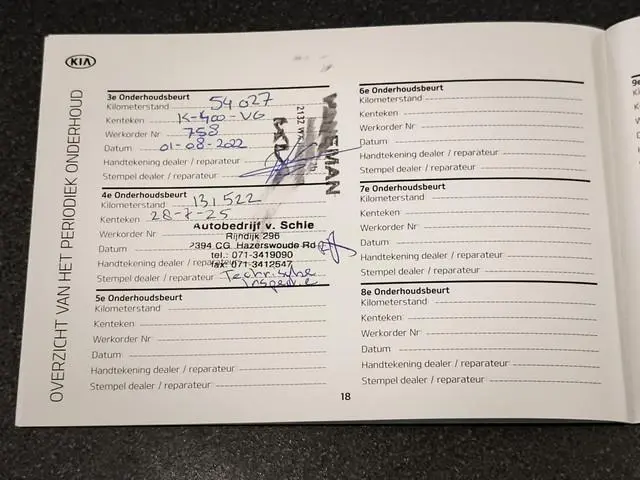 KIA
OVERZICHT VAN HET PERIODIEK ONDERHOUD
3e Onderhoudsbeurt
Kilometerstand 54027
Kenteken K-400-VG
Werkorder Nr 758
Datum 01-08-2022
Handtekening dealer / reparateur
Stempel dealer / reparateur
2132 WX
4e Onderhoudsbeurt
Kilometerstand 131522
Kenteken 28-7-25
Autobedrijf v. Schie
Werkorder Nr
Rijndijk 296
Datum
2394 CG Hazerswoude Rd
Handtekening dealer
tel.: 071-3419090
fax: 071-3412547
Stempel dealer / reparateur Technische
Inspectie
5e Onderhoudsbeurt
Kilometerstand
Kenteken
Werkorder Nr
Datum
Handtekening dealer / reparateur
Stempel dealer / reparateur
6e Onderhoudsbeurt
Kilometerstand
Kenteken
Werkorder Nr
Datum
Handtekening dealer / reparateur
Stempel dealer / reparateur
7e Onderhoudsbeurt
Kilometerstand
Kenteken
Werkorder Nr
Datum
Handtekening dealer / reparateur
Stempel dealer / reparateur
8e Onderhoudsbeurt
Kilometerstand
Kenteken
Werkorder Nr
Datum
Handtekening dealer / reparateur
Stempel dealer / reparateur
18